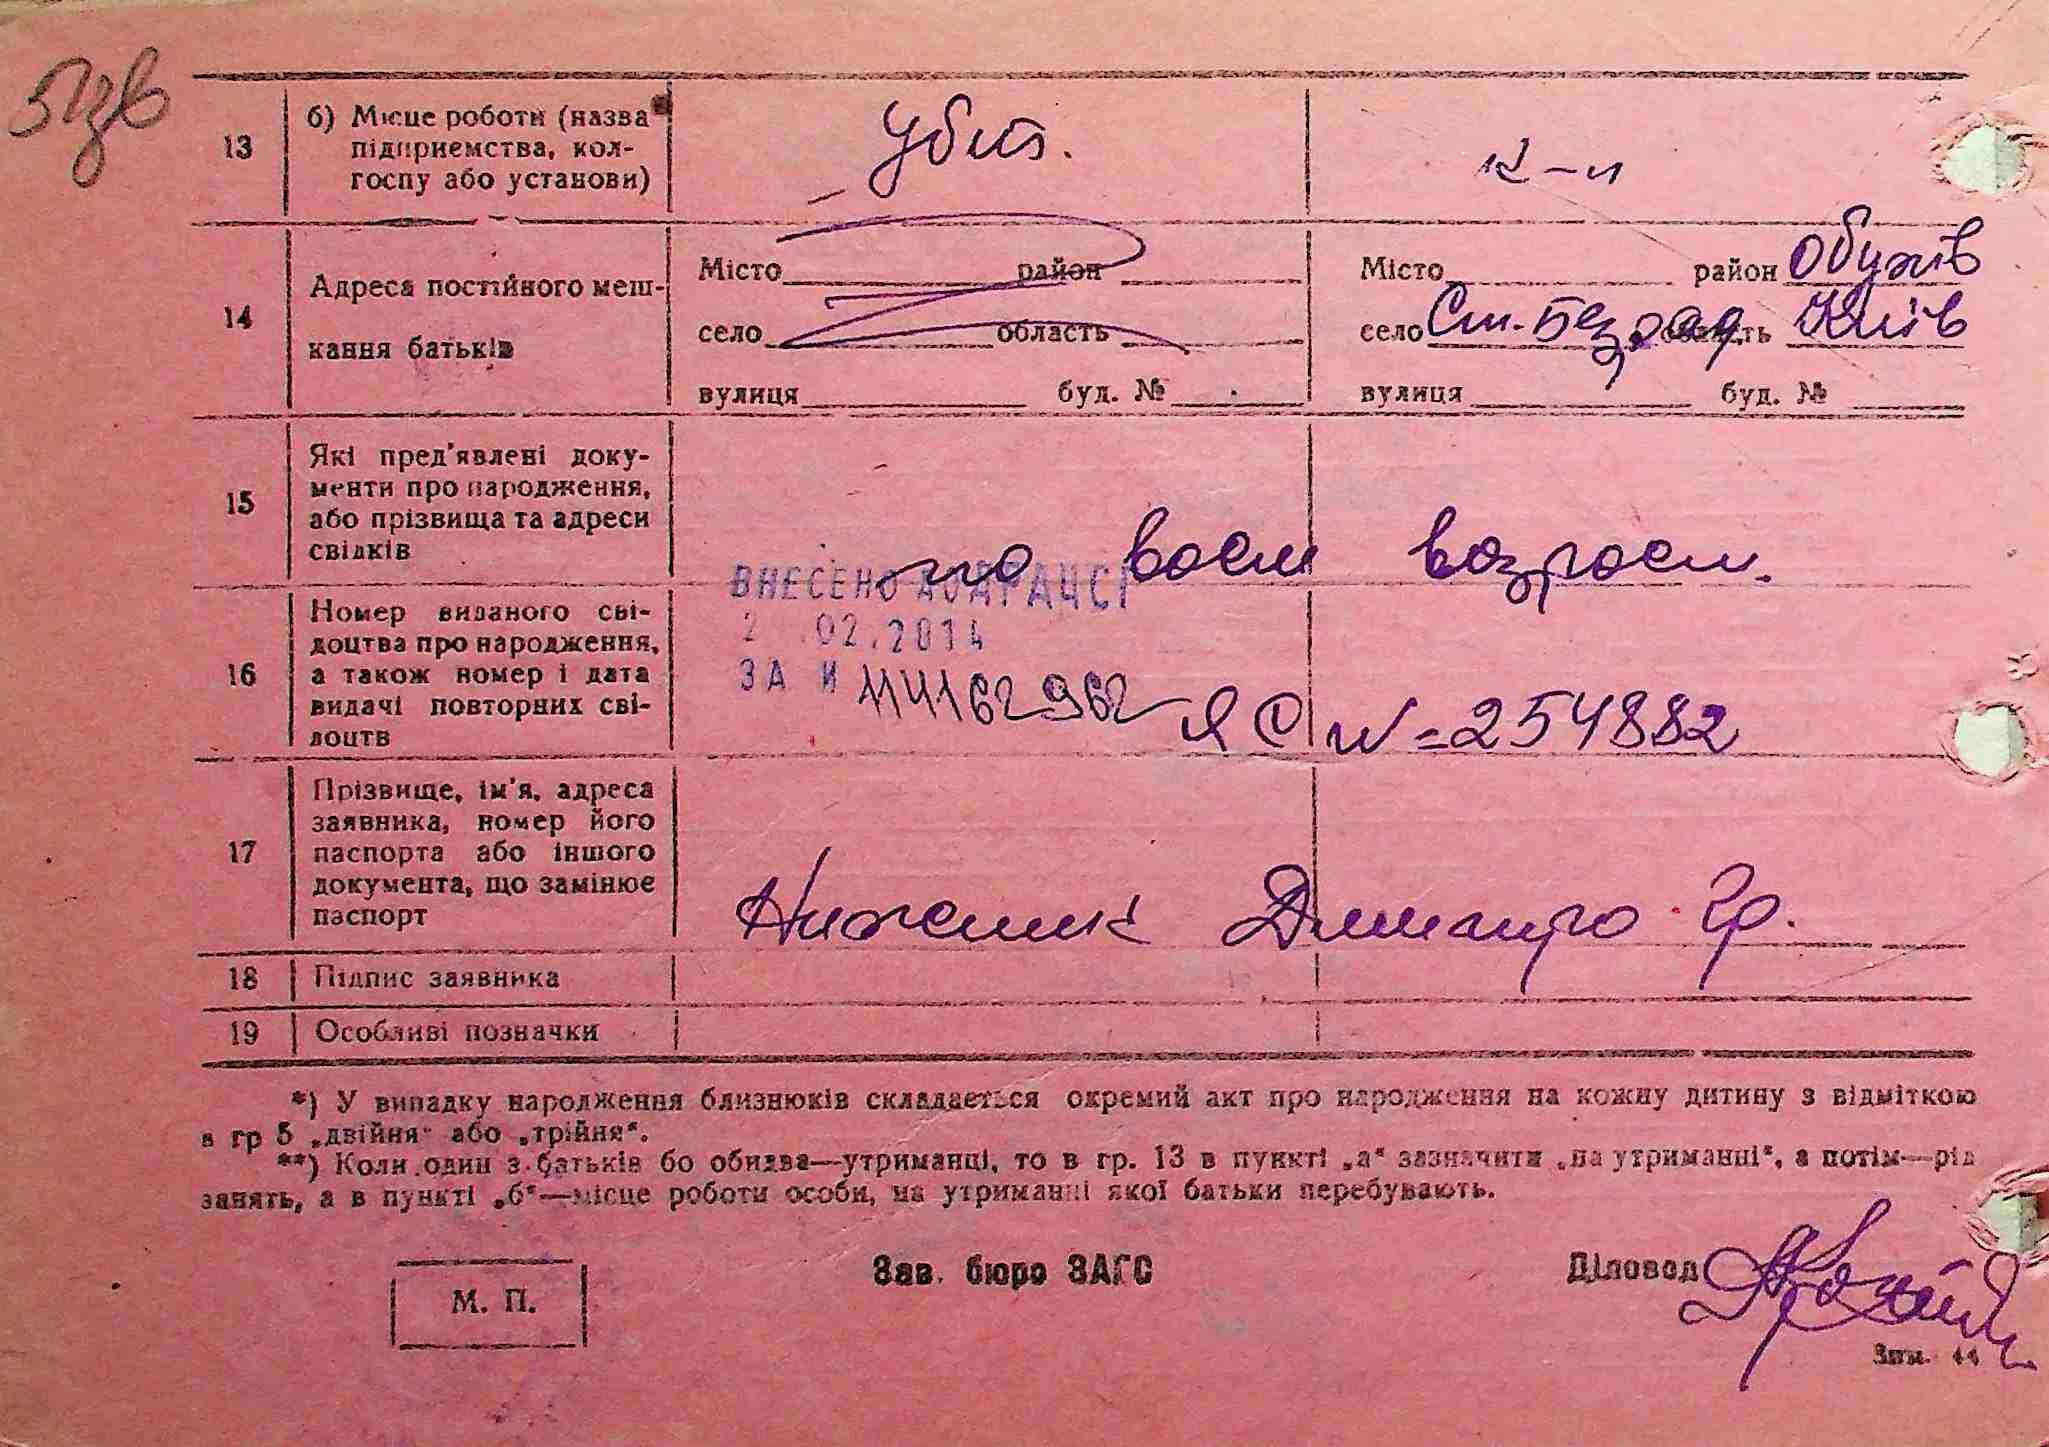 51зв
13
б) Місце роботи (назва
підприємства, кол-
госпу або установи)
убит.
к-п
14
Адреса постійного меш-
кання батьків
Місто район
село область
вулиця буд. №
Місто район Обухів
село Ст. Безрад. область Київ
вулиця буд. №
15
Які пред'явлені доку-
менти про народження,
або прізвища та адреси
свідків
по восст возраст.
16
Номер виданого сві-
доцтва про народження,
а також номер і дата
видачі повторних сві-
доцтв
ВНЕСЕНО ДО ДРАЦСГ
2 .02.2014
ЗА №
ЯС № 254882
17
Прізвище, ім'я, адреса
заявника, номер його
паспорта або іншого
документа, що замінює
паспорт
Ниженик Дмитро Гр.
18
Підпис заявника
19
Особливі позначки
*) У випадку народження близнюків складається окремий акт про народження на кожну дитину з відміткою
в гр 5 „двійня“ або „трійня“.
**) Коли один з батьків бо обидва—утриманці, то в гр. 13 в пункті „а“ зазначити „на утриманні“, а потім—рід
занять, а в пункті „б“—місце роботи особи, на утриманні якої батьки перебувають.
М. П.
Зав. бюро ЗАГС
Діловод
Зам. 44